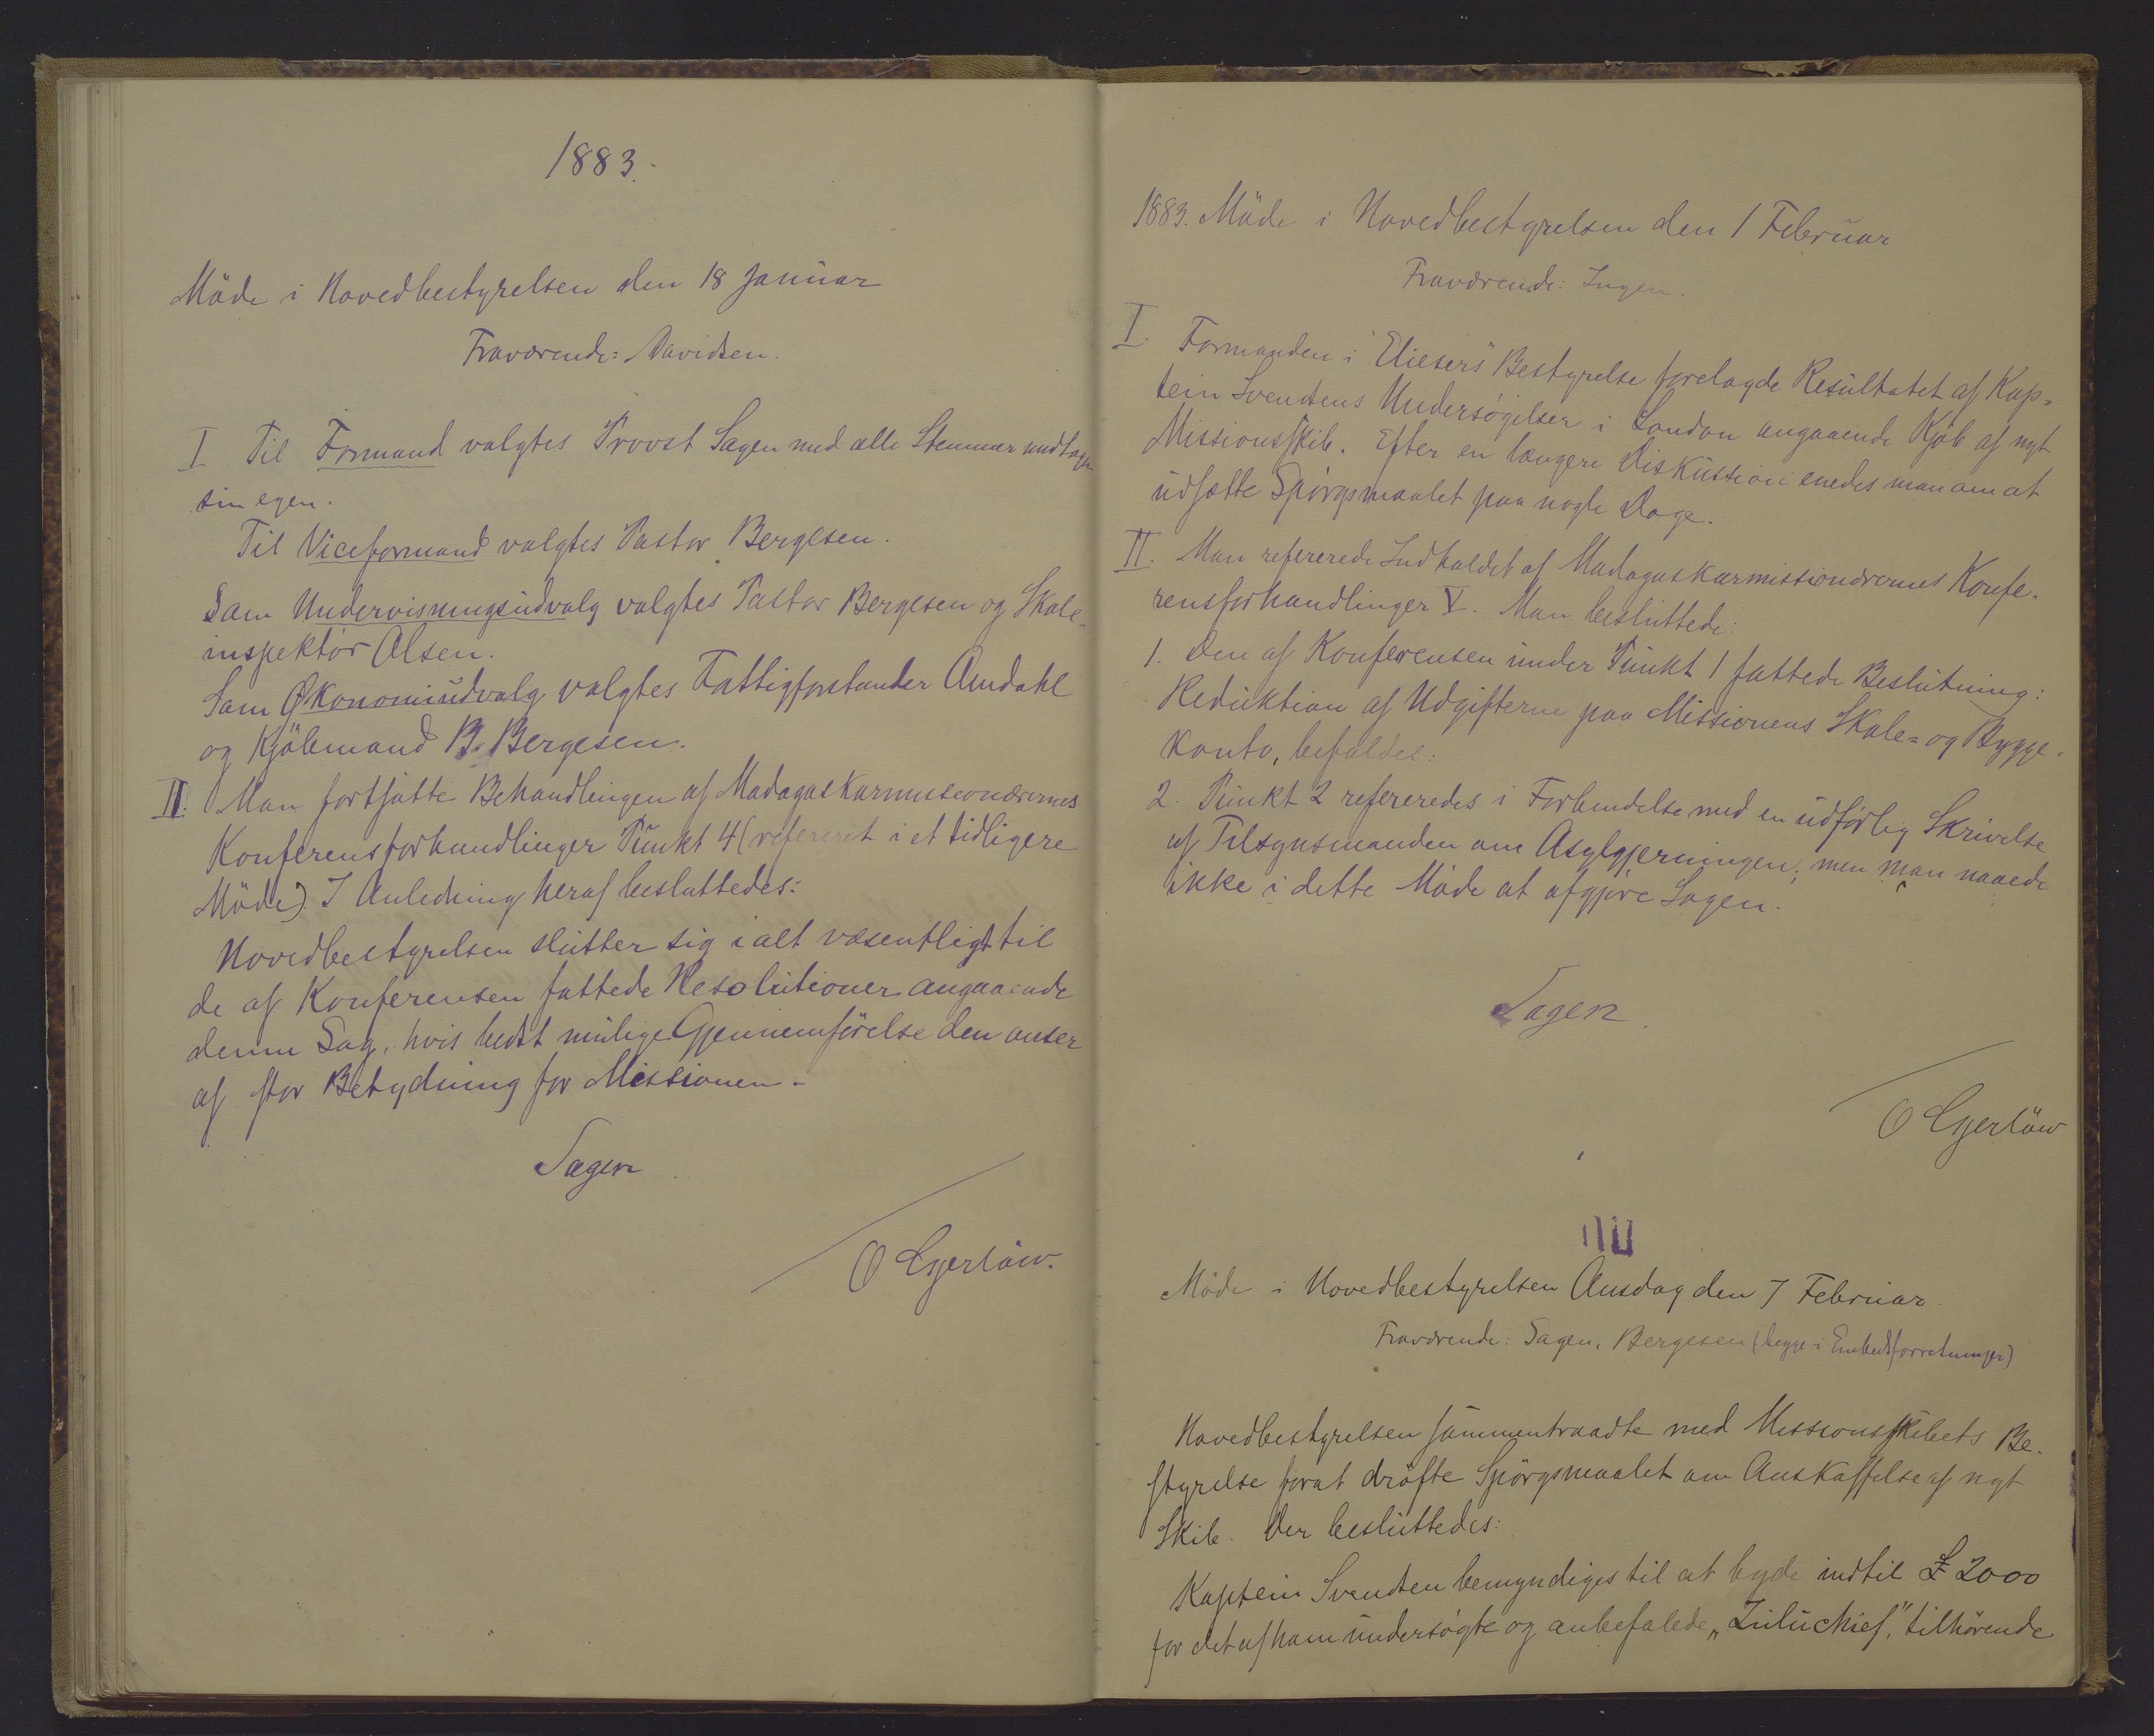 1883.
Möde i Hovedbestyrelsen den 18 Januar
Fraværende: Davidsen.
I Til Formand valgtes Provst Sagen med alle Stemmer undtagen
sin egen.
Til Viceformand valgtes Pastor Bergesen.
Som Undervisningsudvalg valgtes Pastor Bergesen og Skole-
inspektör Olsen.
Som Økonomiudvalg valgtes Fattigforstander Amdahl
og Kjöbmand B. Bergesen.
II. Man fortsatte Behandlingen af Madagaskarmissionærernes
Konferensforhandlinger Punkt 4 (refereret i et tidligere
Möde) I Anledning heraf besluttedes:
Hovedbestyrelsen slutter sig i alt væsentligt til
de af Konferensen fattede Resolutioner angaaende
denne Sag, hvis bedst mulige Gjennemförelse den anser
af stor Betydning for Missionen.
Sagen
O Gjerlöw.
1883. Möde i Hovedbestyrelsen den 1 Februar
Fraværende: Ingen.
I. Formanden i "Eliesers" Bestyrelse forelagde Resultatet af Kap-
tein Svendsens Undersögelser i London angaaende Kjöb af nyt
Missionsskib. Efter en længere Diskussion enedes man om at
udsætte Spörgsmaalet paa nogle Dage.
II. Man refererede Indholdet af Madagaskarmissionærernes Konfe-
rensforhandlinger V. Man besluttede:
1. Den af Konferensen under Punkt 1 fattede Beslutning:
Reduktion af Udgifterne paa Missionens Skole- og Bygge-
konto, bifaldes.
2. Punkt 2 refereredes i Forbindelse med en udförlig Skrivelse
af Tilsynsmanden om Asylgjerningen; men man naaede
ikke i dette Möde at afgjöre Sagen.
Sagen
O Gjerlöw
Möde i Hovedbestyrelsen Onsdag den 7 Februar
Fraværende: Sagen, Bergesen (begge i Embedsforretninger)
Hovedbestyrelsen sammentraadte med Missionsskibets Be-
styrelse forat dröfte Spörgsmaalet om Anskaffelse af nyt
Skib. Der besluttedes:
Kaptein Svendsen bemyndiges til at byde indtil £ 2000
for det af ham undersögte og anbefalede „Zuluchief," tilhörende